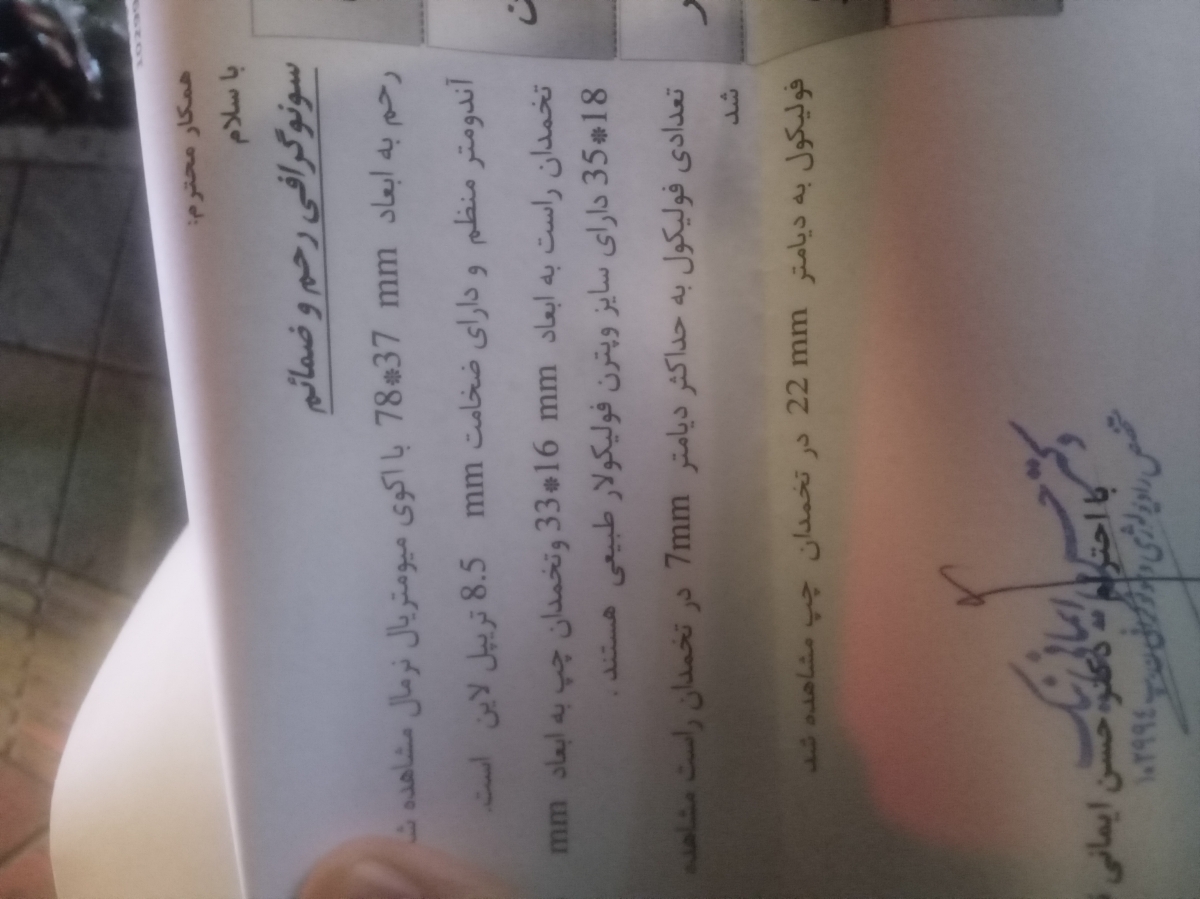 همکار محترم:
با سلام
سونوگرافی رحم و ضمائم
رحم به ابعاد 78*37 mm با اکوی میومتریال نرمال مشاهده
آندومتر منظم و دارای ضخامت 8.5 mm تریپل لاین است.
تخمدان راست به ابعاد 33*16 mm وتخمدان چپ به ابعاد mm
35*18 دارای سایز وپترن فولیکولار طبیعی هستند .
تعدادی فولیکول به حداکثر دیامتر 7mm در تخمدان راست مشاهده
شد
فولیکول به دیامتر 22 mm در تخمدان چپ مشاهده شد
با احترام
دکتر حسن ایمانی